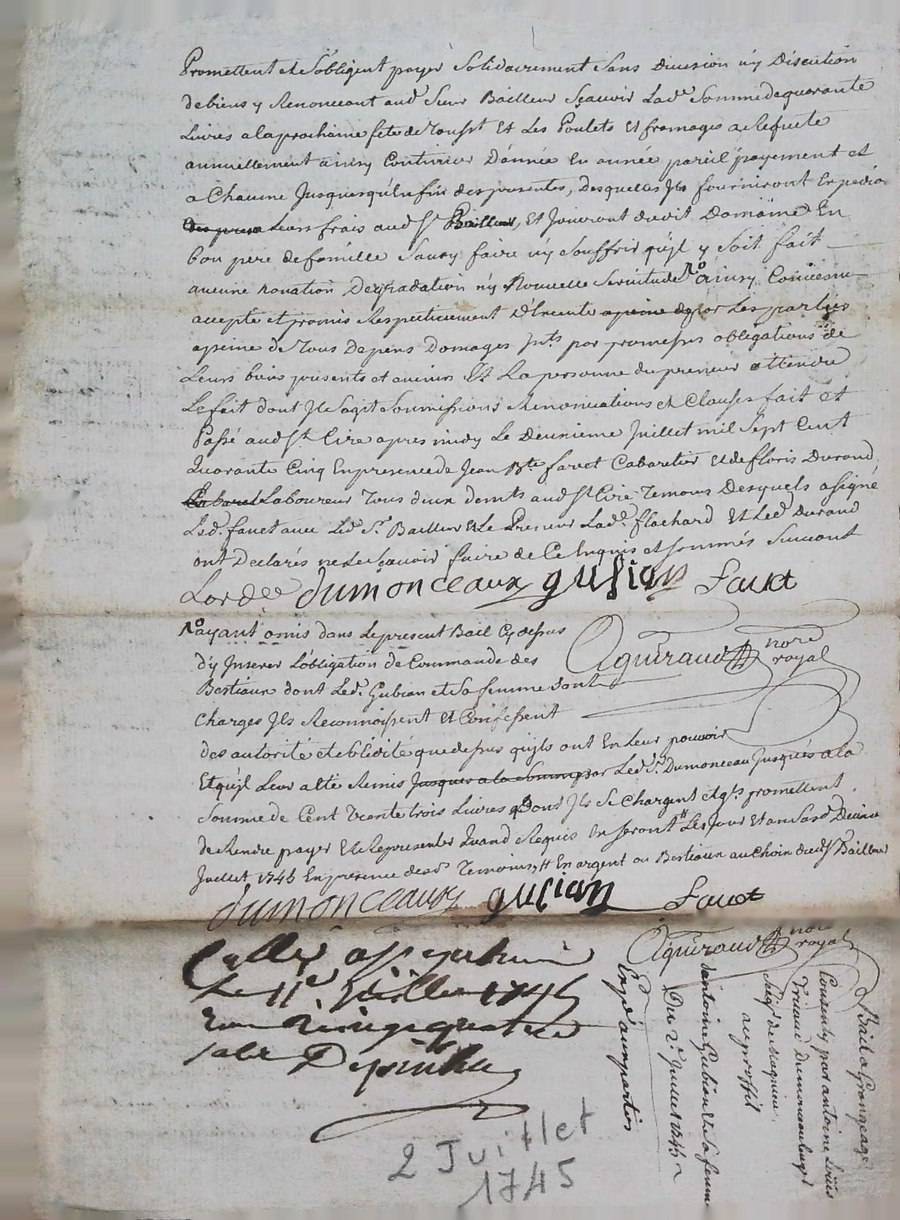 Promettent et S'obligent payér Solidairement Sans Division n'y Discution
de biens y Renonceant aud. Sieur Bailleur Sçavoir Lad.e Somme de quarante
Livres a la prochaine fete de Tousst Et Les Poulets Et fromages a
annuellement ainsy Continuer D'année En année pareil payement et
a Chacune Jusques qu'a la fin des presentes, desquelles Ils fourniront Expedion
Leurs frais aud. Sr Bailleur, Et Jouiront dudit Domaine En
bon pere de famille Sans y faire n'y Souffrir qu'il y Soit fait
aucune novation Degradation n'y Nouvelle Servitude Ro ainsy Convenu
accepte et promis Respectivement D'Execute a peine de par Les parties
a peine de Tous Depens Domages Jnts par promesses obligations de
Leurs biens presents et avenirs Et La personne du preneur attendu
Le fait dont Il S'agit Soumissions Renonciations et Clauses fait et
Passé aud. St Cire apres midy Le Deuxieme Juillet mil Sept Cent
Quarante Cinq En presence de Jean Bte favet Cabaretier Et de floris Durand
Laboureur Tous deux demts aud. St Cire Temoins Desquels a signé
Led. favet avec Led. Sr. Bailleur Et Le Preneur Lad.e flachard Et Led. Durand
ont Declarés ne Le Sçavoir faire de Ce Enquis et Sommés Suivant
L'ord.ce dumonceaux gubian favet
Ro ayant omis dans Le present Bail Cy dessus
d'y Inserer L'obligation de Commande des
Aguiraud nore royal
Bestiaux dont Led. Gubian et Sa femme Sont
Charges Ils Reconnoissent Et Confessent
des autorité et que dessus qu'ils ont En Leur pouvoir
Et qu'il Leur a été Remis Jusques a la Somme par Led. Sr. Dumonceau Jusques a la
Somme de Cent Trente trois Livres Dont Ils Se Chargent et promettent
de Rendre payer Et Representer Quand Requis En Seront Les Jour Et an Susd. Deuxe
Juillet 1745 En presence desd. Temoins, # En argent ou Bestiaux au Choix dud. Sr Bailleur
dumonceaux gubian favet
Aguiraud nore royal
Le 11e Juillet 1745
2 Juillet
1745
Bail a Grangeage
Consenty par antoine Louis
Dumonceau
de Magnieu
au proffit
d'antoine Gubian Et Sa femme
Du 2e Juillet 1745